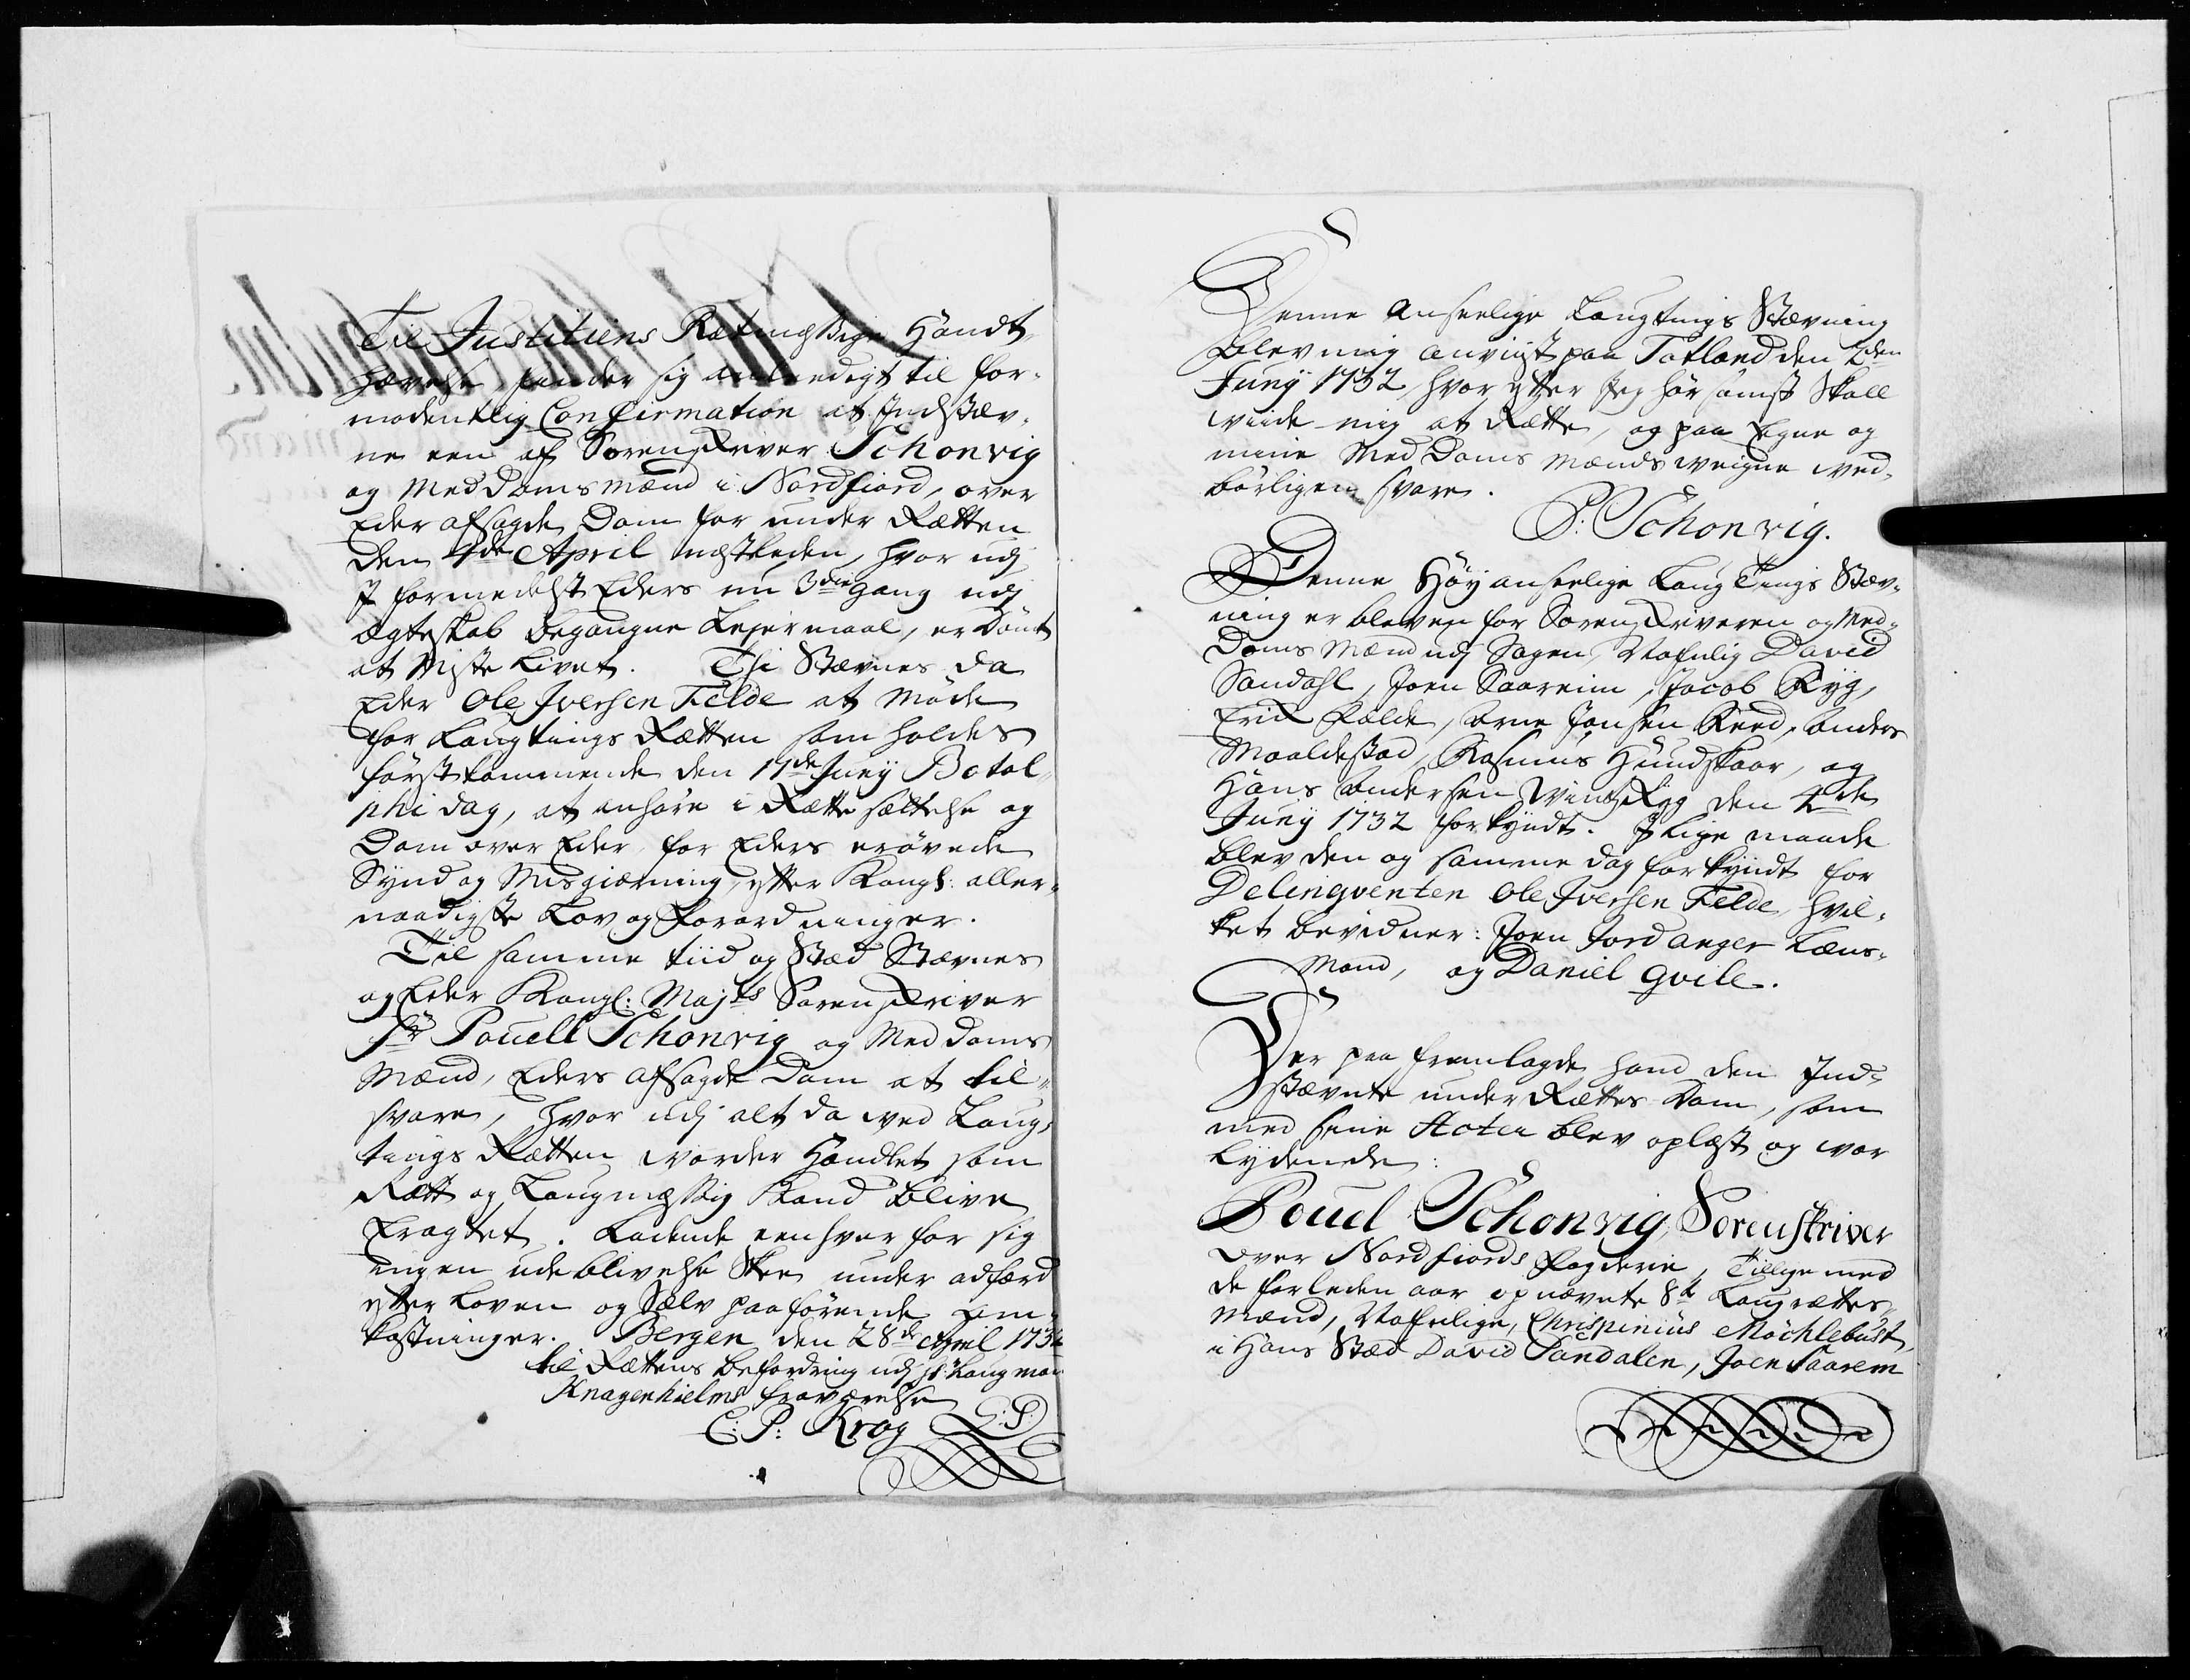 Til Justitiens Rætmæssige Handt,
hævelse finder sig  til for,
modentlig Confirmation at Indstæv,
ne een af Sorenskriver Schonvig
og Meddomsmænd i Nordfiord, over
Eder afsagde Dom for under Rætten
Den 4de April næstleden, hvor udj
I formedelst Eders nu 3die gang udj
ægteskab begangne Lejermaal, er Dömt
at Miste Livet. Thi Stævnes da
Eder Ole Iversen Felde at Möde
for Laugtings Rætten som holdes
förstkommende den 17de Juny Botol,
phi dag, at anhöre i Rættesættelse og
Dom over Eder for Eders  
Synd og Misgierning, efter Kongl: aller,
naadigste Lov og Forordninger.
Til samme tiid og Stæd Stævnes
og Eder Kongl: Majts Sorenskriver
Sr Pouell Schonvig og Meddoms
Mænd, Eders afsagde Dom at til,
svare, hvor udj alt da ved Laug,
tings Rætten vorder Handlet som
Rætt og Laugmæssig Kand blive
Eragtet. Ladende eenhver for sig
ingen udeblivelse Skee under adfærd
efter Loven og Selv paaförende Om,
kostninger. Bergen den 28de April 1732
til Rættens befordring udj hr Laugman
Knagenhielms fraværelse
C: P: Krog L:S:
Denne anseelige Laugtings Stævning
blev mig anviist paa Totland den 2den
Juny 1732, hvor efter Jeg hörsomst Skall
viide mig at Rætte, og paa Egne og
mine MedDoms Mænds veigne ved,
börligen svare.
P: Schonvig.
Denne Höyanseelige LaugTings Stæv,
ning er bleven for Sorenskriveren og Med,
Doms Mænd udj Sagen, Nafnlig David
Sandahl, Joen Saareim, Jacob Ryg,
Erik Fælde, Arne Jonsen Reed, Anders
Maaldestad, Rasmus Hundskaar, og
Hans Andersen  den 2de
Juny 1732 forkyndt. I lige maade
blev den og samme dag forkyndt for
Delinqventen Ole Iversen Felde, hvil,
ket bevidner: Joen Jordanger Læns,
Mand, og Daniel Qvile.
Der paa fremlagde hand den Ind,
stævnte under Rættes Dom, som
med sine Acter blev oplæst og var
Lydende:
Pouel Schonvig, Sorenskriver
over Nordfiords Fogderie, Tillige med
de forleden aar opnævnte 8te Laugrættes,
Mænd, Nafnlige, Chrispinius Möchlebust,
i Hans Stæd David Sandalen, Joen Saarem